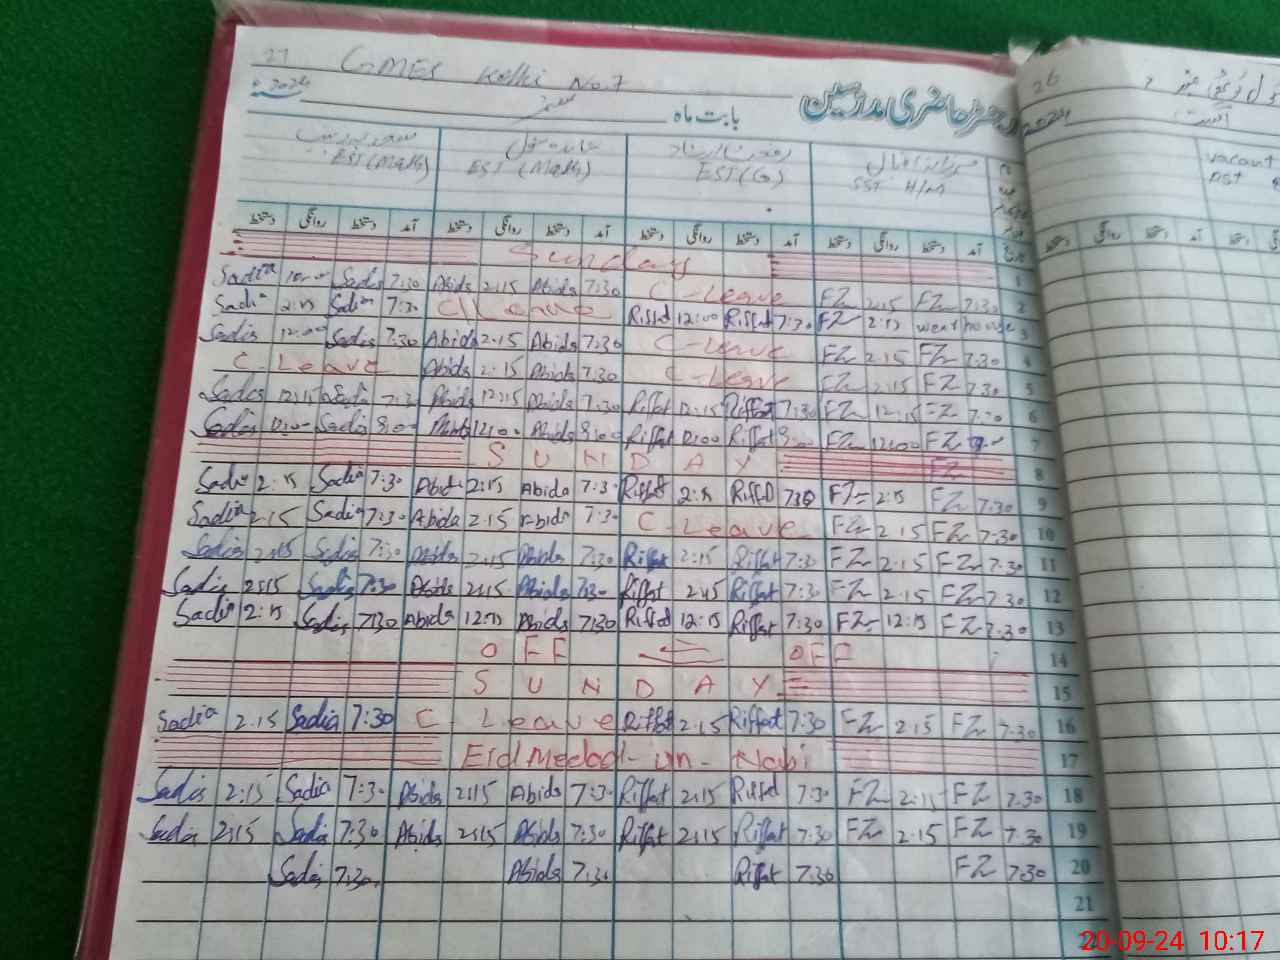 27 GMES Kolhi No.7
2024 بابت ماہ ستمبر رجسٹر حاضری مدرسین
EST (Maths) EST (Maths) EST (G) SST H/M
دستخط روانگی دستخط آمد دستخط روانگی دستخط آمد دستخط روانگی دستخط آمد دستخط روانگی دستخط آمد تاریخ
Sunday 1
Sadia Sadia 7:30 Abida 2:15 Abida 7:30 C-Leave FZ 2:15 FZ 7:30 2
Sadia 2:15 Sadia 7:30 C/Leave Riffat 12:00 Riffat 7:30 FZ 2:15 went house 3
Sadia 12:00 Sadia 7:30 Abida 2:15 Abida 7:30 C-Leave FZ 2:15 FZ 7:30 4
C-Leave Abida 2:15 Abida 7:30 C-Leave FZ 2:15 FZ 7:30 5
Sadia 12:15 Sadia 7:30 Abida 12:15 Abida 7:30 Riffat 12:15 Riffat 7:30 FZ 12:15 FZ 7:30 6
Sadia Sadia 8:00 Abida 12:00 Abida 8:00 Riffat Riffat FZ 12:00 FZ 7
SUNDAY FZ 8
Sadia 2:15 Sadia 7:30 Abida 2:15 Abida 7:30 Riffat 2:15 Riffat 7:30 FZ 2:15 FZ 7:30 9
Sadia 2:15 Sadia 7:30 Abida 2:15 Abida 7:30 C-Leave FZ 2:15 FZ 7:30 10
Sadia 2:15 Sadia 7:30 Abida 2:15 Abida 7:30 Riffat 2:15 Riffat 7:30 FZ 2:15 FZ 7:30 11
Sadia 2:15 Sadia 7:30 Abida 2:15 Abida 7:30 Riffat 2:15 Riffat 7:30 FZ 2:15 FZ 7:30 12
Sadia 2:15 Sadia 7:30 Abida 12:15 Abida 7:30 Riffat 12:15 Riffat 7:30 FZ 12:15 FZ 7:30 13
OFF OFF 14
SUNDAY 15
Sadia 2:15 Sadia 7:30 C-Leave Riffat 2:15 Riffat 7:30 FZ 2:15 FZ 7:30 16
Eid Medad-un-Nabi 17
Sadia 2:15 Sadia 7:30 Abida 2:15 Abida 7:30 Riffat 2:15 Riffat 7:30 FZ 2:15 FZ 7:30 18
Sadia 2:15 Sadia 7:30 Abida 2:15 Abida 7:30 Riffat 2:15 Riffat 7:30 FZ 2:15 FZ 7:30 19
Sadia 7:30 Abida 7:30 Riffat 7:30 FZ 7:30 20
21
26
2024 اگست
vacant
دستخط روانگی دستخط آمد دستخط
20-09-24 10:17